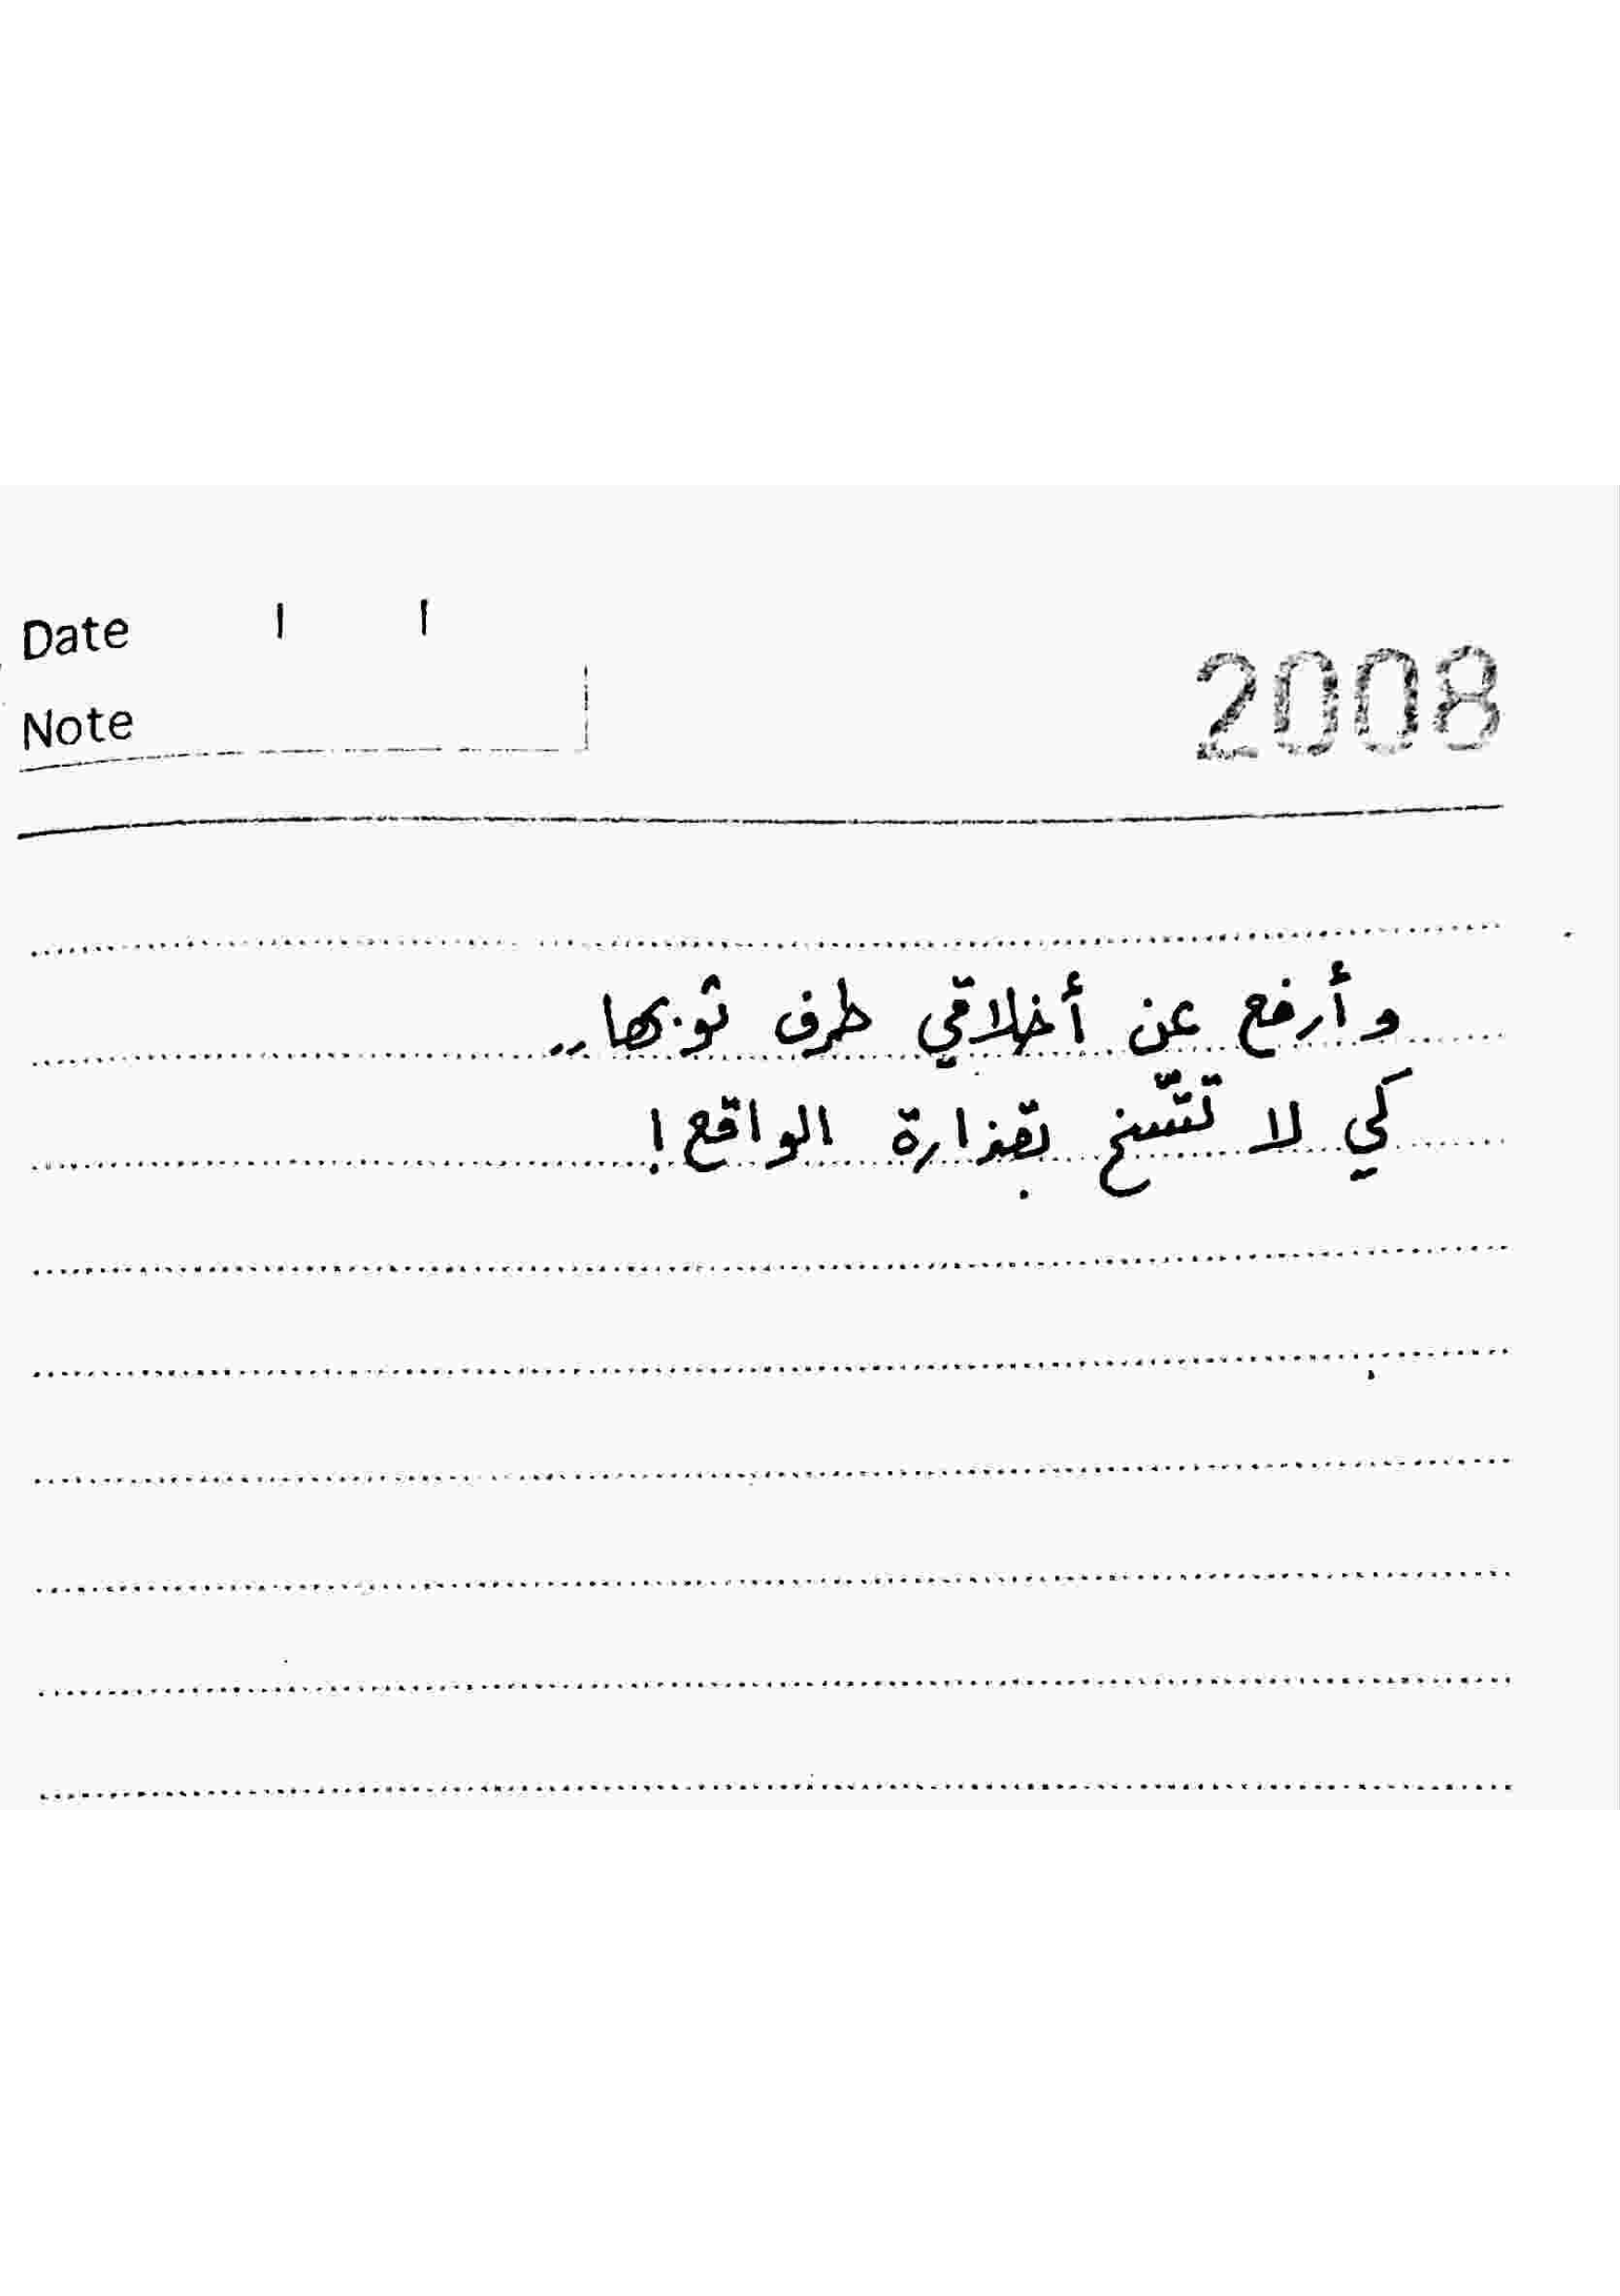 Date / /
2008
Note
وأرفع عن أخلاقي طرف ثوبها..
كي لا تتّسخ بقذارة الواقع!